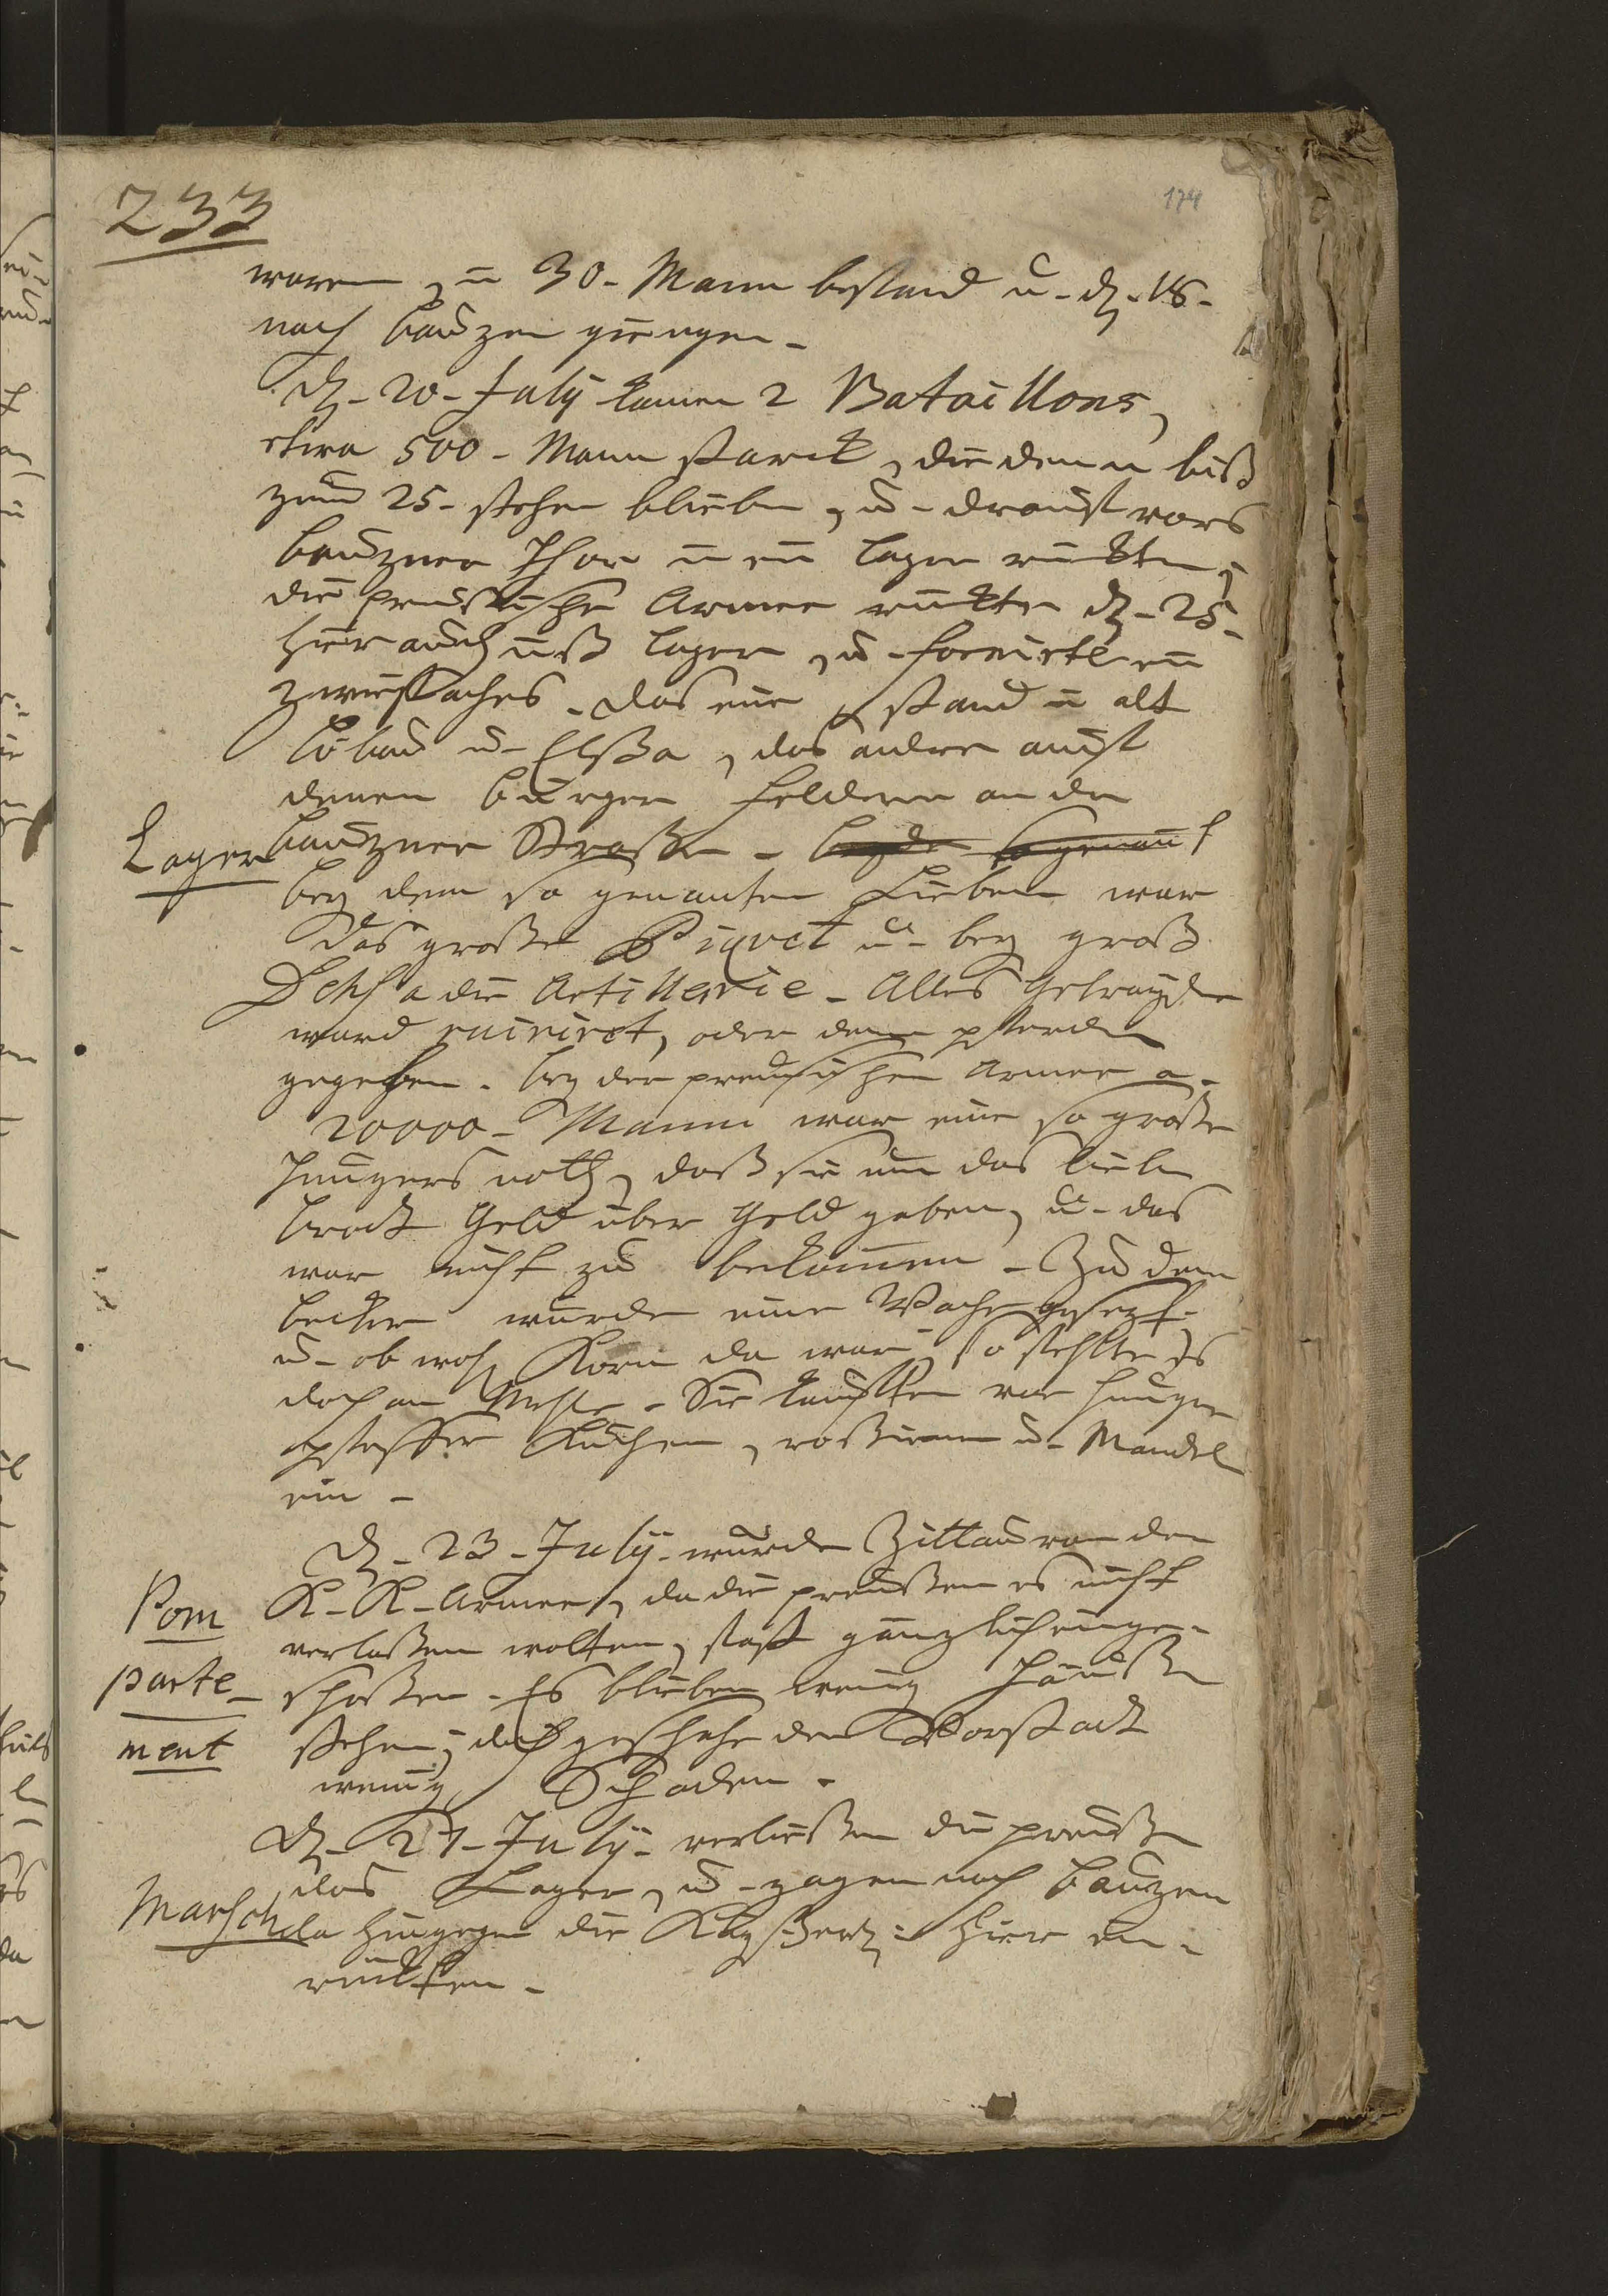 233
174
waren, in 30 - Mann bestand u - dℨ - 18 -
nach Bauzen giengen -
dℨ - 20 - July kamen 2 Bataillons,
etwa 500 - Mann starck, die denn biß
zum 25 - stehen blieben, u - drauf vors
Bauzner Thor in ein Lager rückten,
die preussische Armee rückte dℨ - 25 -
hier auch ins Lager, u - formirte ein
zwiefaches - das eine stand in alt
Löbau u - Elßa, das andere auf
denen Bürger Feldern an der
Lager
Bauzner Straße - bey dem so genant
bey dem so genanten Lieben war
das große Piqvet u - bey groß
Dehsa die Artillerie - Alles Getrayde
ward ruiniret, oder denen pferden
gegeben - bey der preusischen Armee a -
20000 - Mann war eine so große
Hungers noth, daß sie um das liebe
Brodt Geld über Geld geben, u - das
war nicht zu bekommen - Zu dem
Becker wurde eine Wache gesezt -
u - ob wohl Korn da war, so fehlte es
doch an Mehle - Sie kauften vor Hunger
pfeffer Kuchen, roßinen u - Mandel
ein -
dℨ - 23 - July - wurde Zittau von der
Pom
K - K - Armee, da die preußen es nicht
verlaßen wolten, fast gänzlich einge -
parte -
schoßen - Es blieben wenig Häuser
ment
stehen, doch geschahe der Vorstadt
wenig Schaden -
dℨ - 27 - July - verließen die preußen
das Lager, u - zogen nach Bauzen
Marsch
da hingegen die Kayßerl: hier ein -
rückten -